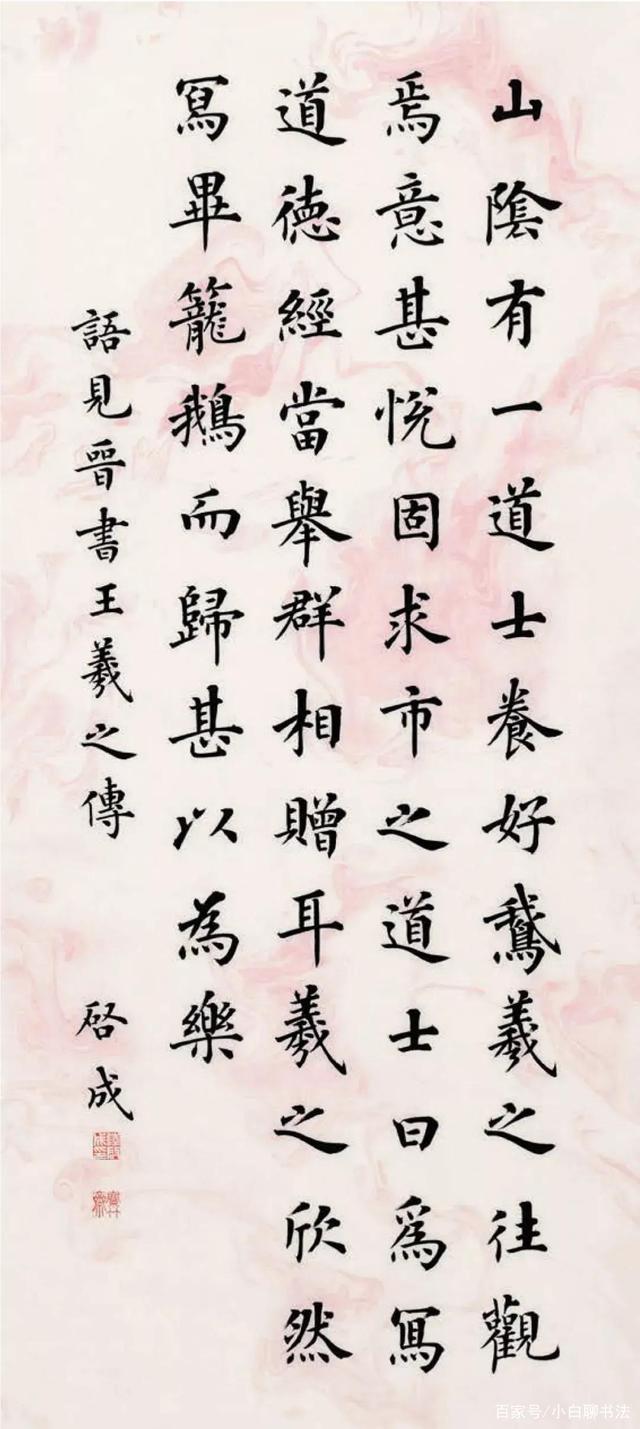 山陰有一道士養好鵞羲之往觀
焉意甚悅固求市之道士曰爲寫
道德經當舉群相贈耳羲之欣然
寫畢籠鵝而歸甚以為樂
語見晉書王羲之傳
啓成
百家号/小白聊书法